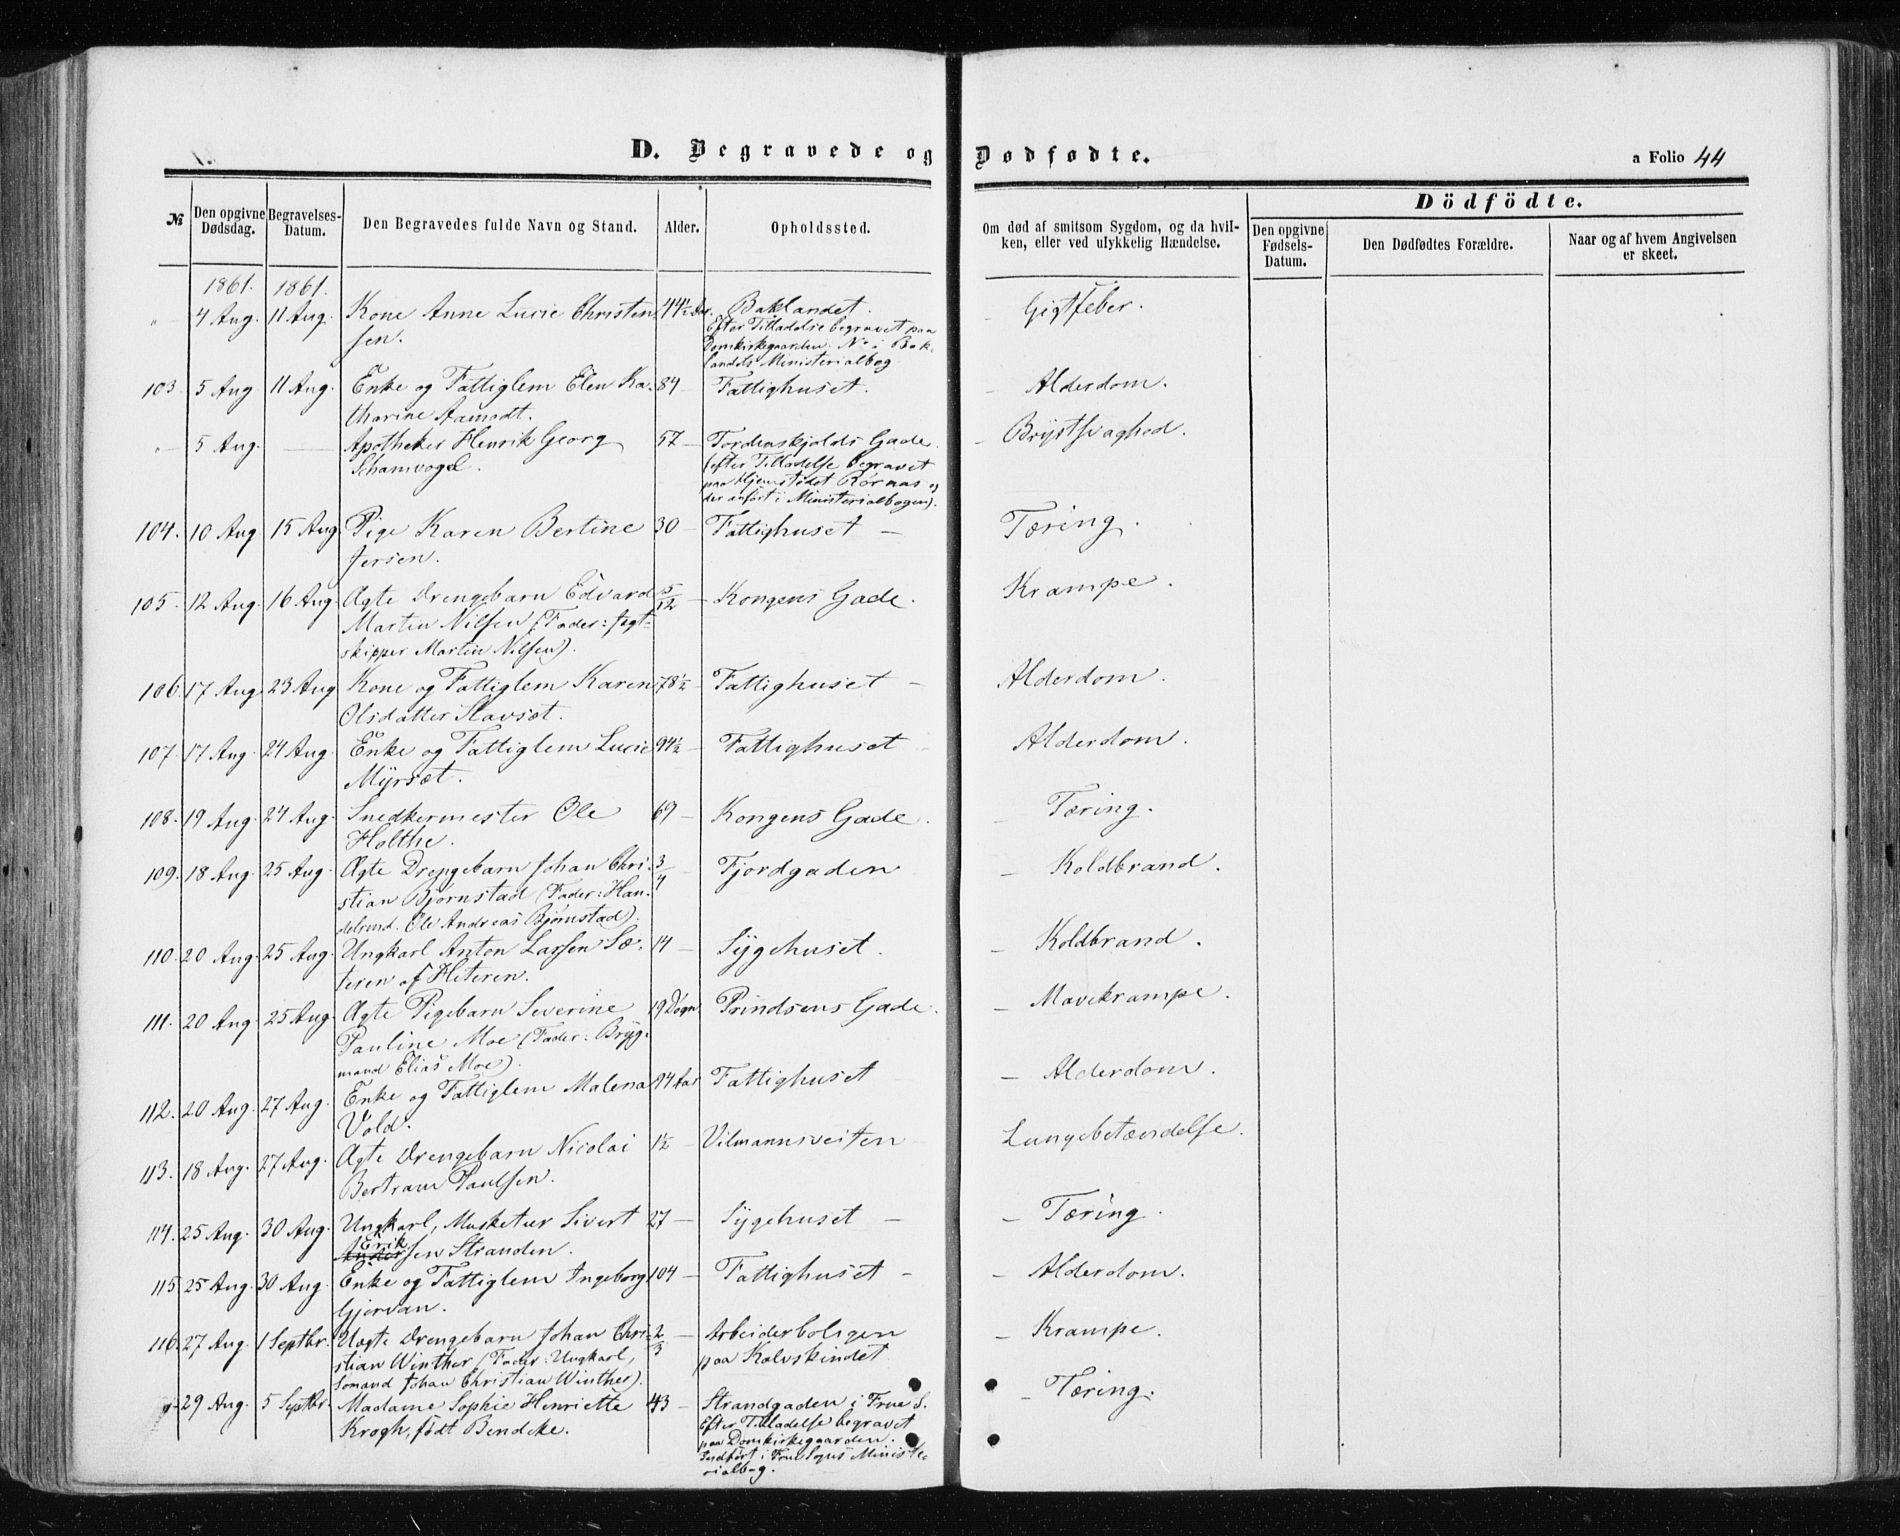 D. Begravede og Dødfødte.
a Folio 44
№
Den opgivne Dødsdag.
Begravelses-Datum.
Den Begravedes fulde Navn og Stand.
Alder.
Opholdssted.
Om død af smitsom Sygdom, og da hvilken, eller ved ulykkelig Hændelse.
Dödfödte.
Den opgivne Fødsels-Datum.
Den Dødfødtes Forældre.
Naar og af hvem Angivelsen er skeet.
1861. 1861.
"- 4 Aug. 11 Aug. Kone Anne Lucie Christen 44½ Aar. Baklandet. Gigtfeber.
sen. Efter Tilladelse begravet paa
Domkirkegaarden. No i Bak-
landets Ministerialbog
103. 5 Aug 11 Aug. Enke og Fattiglem Elen Ka- 84 - Fattighuset. - Alderdom.
tharine Aamodt.
"- 5 Aug. — Apotheker Henrik Georg 57 - Tordenskjolds Gade. - Brystsvaghed.
Schamvogel. (efter Tilladelse begravet
paa Hjemstedet Rørnas og
der anført i Ministerialbogen).
104. 10 Aug 15 Aug. Pige Karen Bertine 30 - Fattighuset - Tæring.
Jersen.
105. 12 Aug. 16 Aug. Ægte Drengebarn Edvard 5/12 - Kongens Gade. Krampe.
Martin Nilsen (Fader: Jegt-
skipper Martin Nilsen).
106. 17 Aug 23 Aug Kone og Fattiglem Karen 78½ - Fattighuset - Alderdom.
Olsdatter Slavsæt.
107. 17 Aug. 24 Aug. Enke og Fattiglem Lucie 94½ - Fattighuset Alderdom.
Myrsæt.
108. 19 Aug. 24 Aug. Snedkermester Ole 69 - Kongens Gade. - Tæring.
Holthe.
109. 18 Aug. 25 Aug. Ægte Drengebarn Johan Chri- 3/4 Fjordgaden - Koldbrand.
stian Bjørnstad (Fader: Han-
delsmd. Ole Andreas Bjørnstad).
110. 20 Aug. 25 Aug. Ungkarl Anton Larsen Sæ- 14 - Sygehuset. - Koldbrand.
teren af Hiteren.
111. 20 Aug. 25 Aug. Ægte Pigebarn Severine 19 Døgn Prindsens Gade. - Mavekrampe.
Pauline Moe (Fader: Bryg-
mand Elias Moe).
112. 20 Aug. 27 Aug. Enke og Fattiglem Malena 84 Aar Fattighuset - Alderdom.
Vold.
113. 18 Aug. 27 Aug. Ægte Drengebarn Nicolai 1½ Vilmannsveiten Lungebetændelse.
Bertram Paulsen.
114. 25 Aug. 30 Aug. Ungkarl, Musketeer Sivert 27 - Sygehuset - - Tæring.
Erik
Andersen Stranden.
115. 25 Aug. 30 Aug. Enke og Fattiglem Ingeborg 104 - Fattighuset - - Alderdom.
Gjervan.
116. 27 Aug. 1 Septbr. Uægte Drengebarn Johan Chri- 2/3 - Arbeiderboligen - Krampe.
stian Winther (Fader: Ungkarl, paa Kalvskindet
Sømand Johan Christian Winther).
"- 29 Aug. 5 Septbr. Madame Sophie Henriette 43 - Strandgaden i Frue S. - Tæring.
Krogh, født Bendeke. Efter Tilladelse begravet
paa Domkirkegaarden.
Indført i Frue Sogns Ministe-
rialbog.